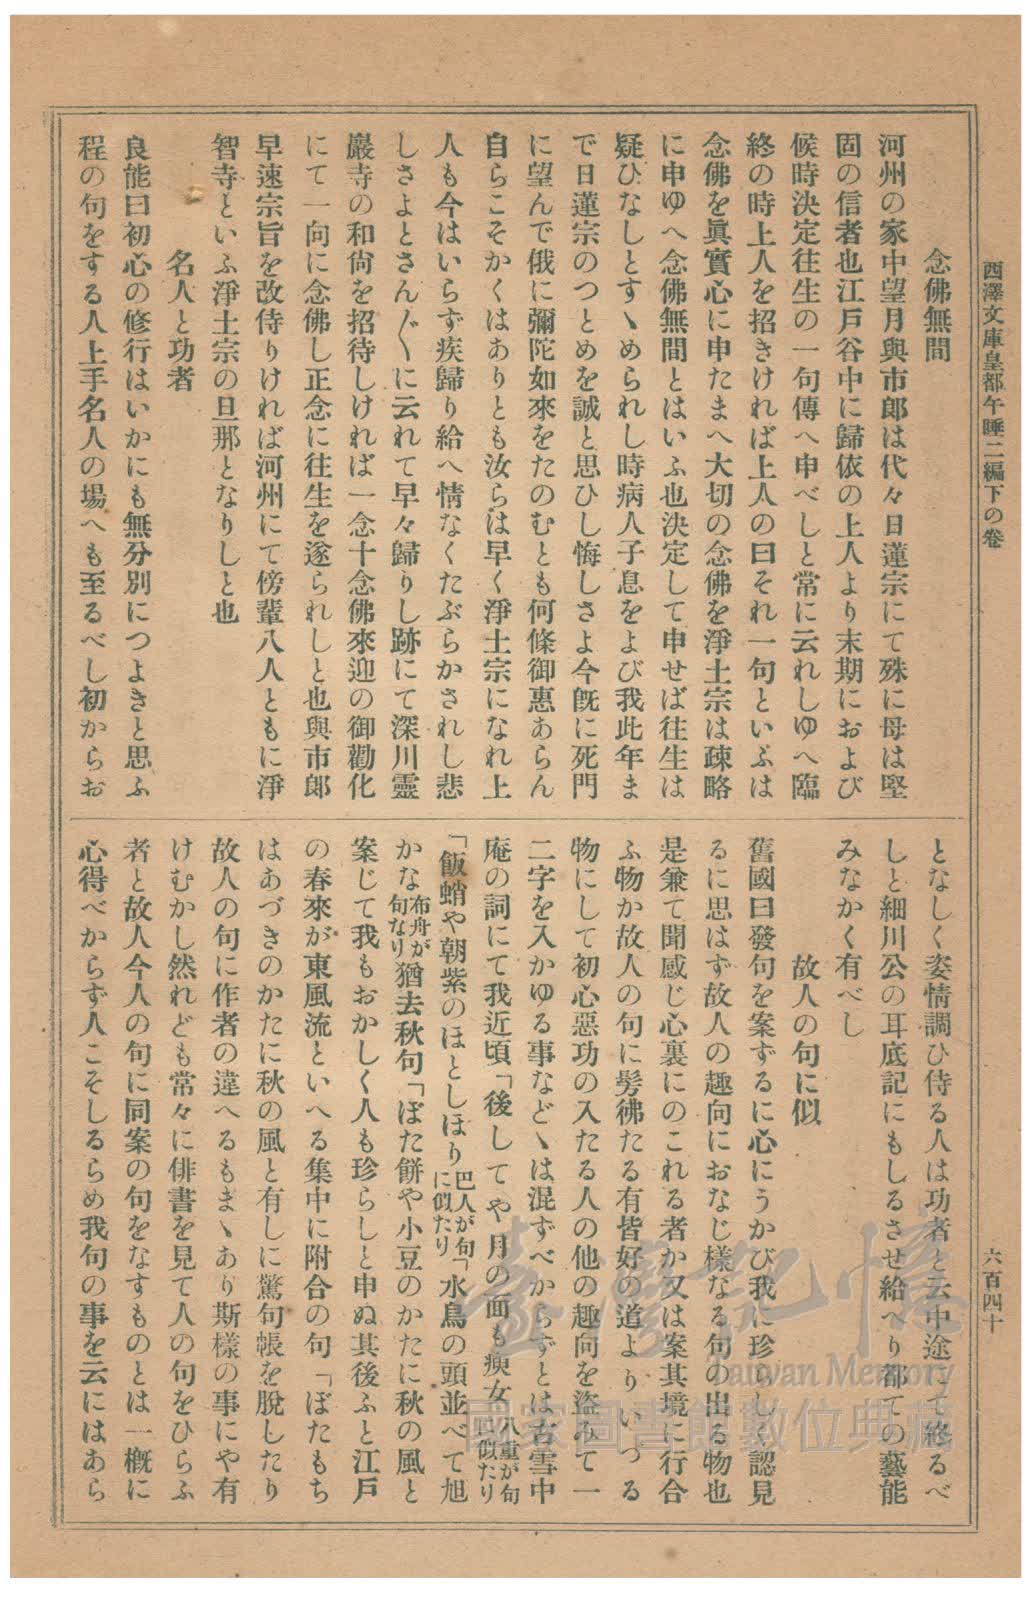 西澤文庫皇都午睡二編下の卷
六百四十
念佛無間
河州の家中望月與市郎は代々日蓮宗にて殊に母は堅
固の信者也江戸谷中に歸依の上人より末期におよび
候時決定往生の一句傳へ申べしと常に云れしゆへ臨
終の時上人を招きければ上人の曰それ一句といふは
念佛を眞實心に申たまへ大切の念佛を淨土宗は疎略
に申ゆへ念佛無間とはいふ也決定して申せば往生は
疑ひなしとすゝめられし時病人子息をよび我此年ま
で日蓮宗のつとめを誠と思ひし悔しさよ今既に死門
に望んで俄に彌陀如來をたのむとも何條御惠あらん
自らこそかくはありとも汝らは早く淨土宗になれ上
人も今はいらず疾歸り給へ情なくたぶらかされし悲
しさよとさん〴〵に云れて早々歸りし跡にて深川靈
巖寺の和尙を招待しければ一念十念佛來迎の御勸化
にて一向に念佛し正念に往生を遂られしと也與市郎
早速宗旨を改侍りければ河州にて傍輩八人ともに淨
智寺といふ淨土宗の旦那となりしと也
名人と功者
良能曰初心の修行はいかにも無分別につよきと思ふ
程の句をする人上手名人の場へも至るべし初からお
となしく姿情調ひ侍る人は功者と云中途にて終るべ
しと細川公の耳底記にもしるさせ給へり都ての藝能
みなかく有べし
故人の句に似
舊國曰發句を案ずるに心にうかび我に珍らしく認見
るに思はず故人の趣向におなじ樣なる句の出る物也
是兼て聞感じ心裏にのこれる者か又は案其境に行合
ふ物か故人の句に髣彿たる有皆好の道よりいづる
物にして初心惡功の入たる人の他の趣向を盜みて一
二字を入かゆる事などゝは混ずべからずとは古雪中
庵の詞にて我近頃「後してや月の面も痩女八重が句に似たり
「飯蛸や朝紫のほとしほり巴人が句に似たり「水鳥の頭並べて旭
かな布舟が句なり猶去秋句「ぼた餅や小豆のかたに秋の風と
案じて我もおかしく人も珍らしと申ぬ其後ふと江戸
の春來が東風流といへる集中に附合の句「ぼたもち
はあづきのかたに秋の風と有しに驚句帳を脫したり
故人の句に作者の違へるもまゝあり斯樣の事にや有
けむかし然れども常々に俳書を見て人の句をひらふ
者と故人今人の句に同案の句をなすものとは一槪に
心得べからず人こそしるらめ我句の事を云にはあら
臺灣記憶
Taiwan Memory
國家圖書館數位典藏